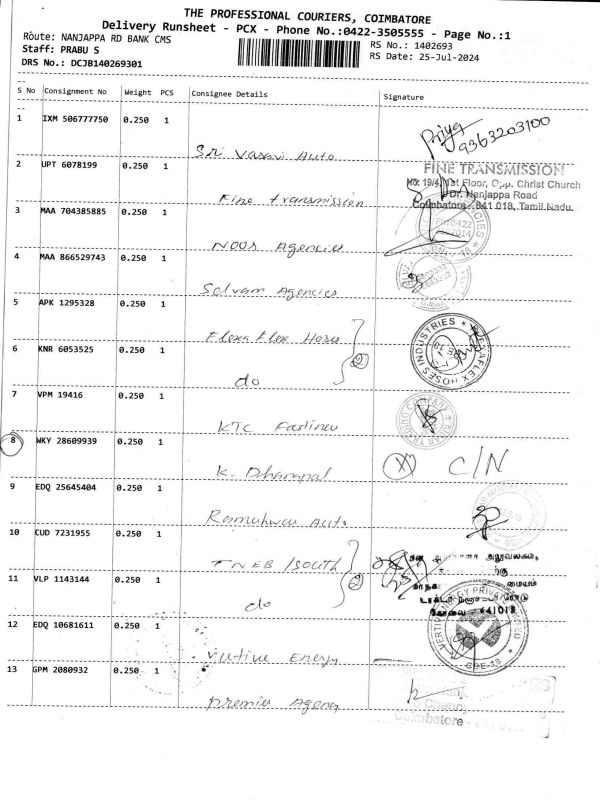 THE PROFESSIONAL COURIERS, COIMBATORE
Delivery Runsheet - PCX - Phone No.:0422-3505555 - Page No.:1
Route: NANJAPPA RD BANK CMS
RS No.: 1402693
Staff: PRABU S
RS Date: 25-Jul-2024
DRS No.: DCJB140269301
S No Consignment No Weight PCS Consignee Details Signature
1 IXM 506777750 0.250 1
Priya
9363203100
Sri Vasavi Auto
2 UPT 6078199 0.250 1
FINE TRANSMISSION
No: 19/4, 1st Floor, Opp. Christ Church
Dr. Nanjappa Road
Coimbatore - 641 018, Tamil Nadu.
Fine transmission
3 MAA 704385885 0.250 1
NOOS Agencies
4 MAA 866529743 0.250 1
Selvam Agencies
5 APK 1295328 0.250 1
Flexaflex Hoses
2
HOSES INDUSTRIES
6 KNR 6053525 0.250 1
do
7 VPM 19416 0.250 1
KTC
8 WKY 28609939 0.250 1
K. Dhanapal
X C/N
9 EDQ 25645404 0.250 1
Auto
10 CUD 7231955 0.250 1
TNEB /SOUTH
2
11 VLP 1143144 0.250 1
do
கோவை - 641018
12 EDQ 10681611 0.250 1
Vertive Energy
VERTIV ENERGY PRIVATE LIMITED
CBE-18
13 GPM 2080932 0.250 1
Premier Agency
Coimbatore